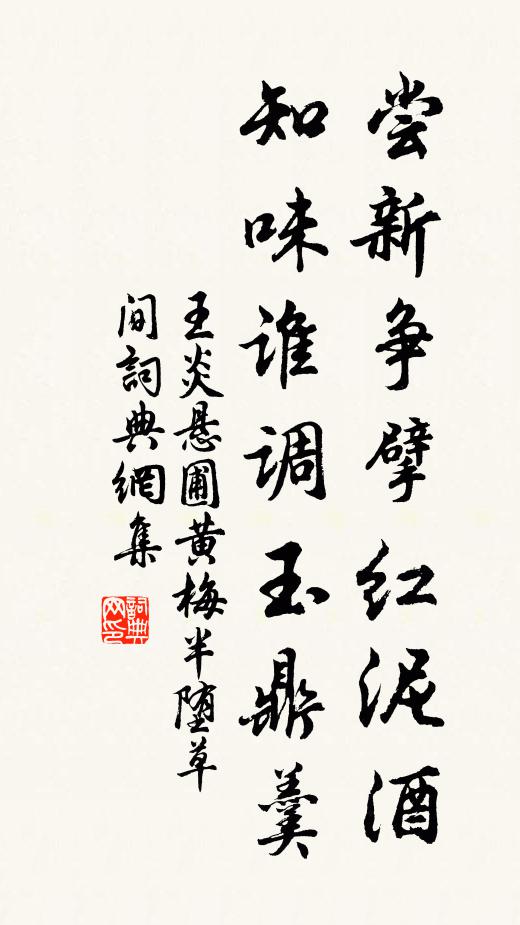 尝新争擘红泥酒
知味谁调玉鼎羹
王炎悬圃黄梅半堕草
间詞典網集
詞典
网印